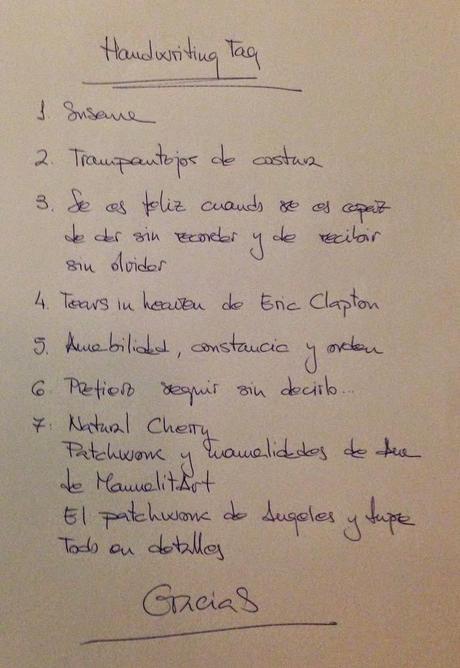 Handwriting Tag
1. Susana
2. Trampantojos de costura
3. Se es feliz cuando se es capaz
de dar sin recordar y de recibir
sin olvidar
4. Tears in heaven de Eric Clapton
5. Amabilidad, constancia y orden
6. Prefiero seguir sin decirlo...
7. Natural Cherry
Patchwork y manualidades de Ana
de ManualitArt
El patchwork de Angeles y Lupe
Todo en detalles
Gracias